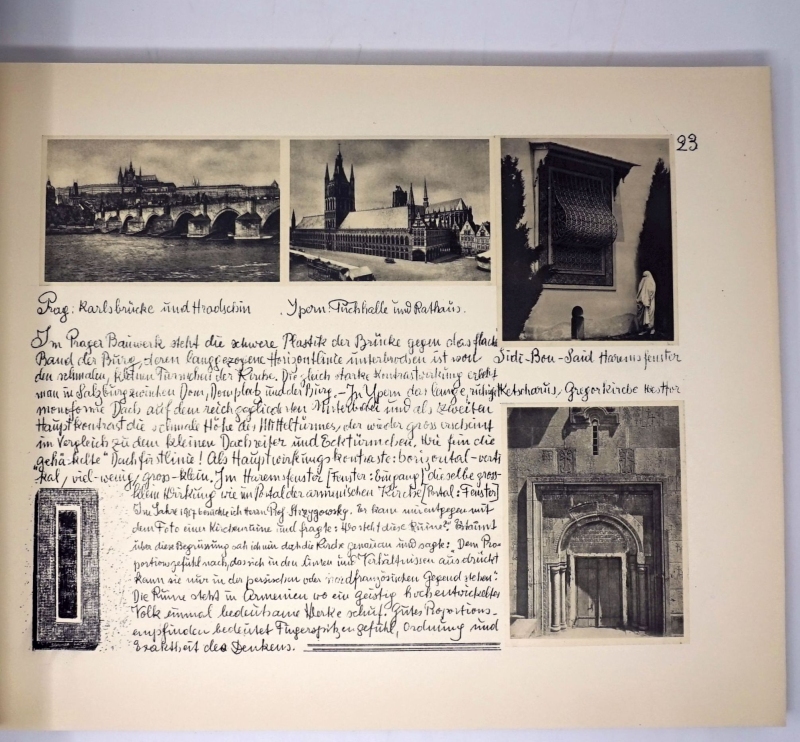 23
Prag: Karlsbrücke und Hradschin
Ypern: Tuchhalle und Rathaus.
Im Prager Bauwerk steht die schwere Plastik der Brücke gegen das flache
Band der Burg, deren langgezogene Horizontlinie unterbrochen ist von
den schmalen, kleinen Türmchen der Kirche. Die gleich starke Kontrastwirkung erlebt
man in Salzburg zwischen Dom, Domplatz und der Burg. – In Ypern das lange, ruhige
monoforme Dach auf dem reichgegliederten Unterbau und als zweiten
Hauptkontrast die schmale Höhe des Mittelturmes, der wieder gross erscheint
im Vergleich zu den kleinen Dachreiter und Ecktürmchen. Wie fein die
"gehäkelte" Dachfirstlinie! Als Hauptwirkungskontraste: horizontal-verti
kal, viel-wenig, gross-klein. Im Haremsfenster [Fenster: Eingang] dieselbe gross-
klein Wirkung wie im Portal der armenischen Kirche [Portal: Fenster]
Im Jahre 1917 besuchte ich Prof. Strzygowsky. Er kam mir entgegen mit
dem Foto einer Kirchenruine und fragte: "Wo steht diese Ruine?" Erstaunt
über diese Begrüssung sah ich mir die Kirche genau an und sagte: "Dem Pro-
portionsgefühl nach, das sich in den Linien und Verhältnissen ausdrückt
kann sie nur in der persischen oder nordfranzösischen Gegend stehen."
Die Ruine steht in Armenien wo ein geistig hochentwickeltes
Volk einmal bedeutsame Werke schuf. Gutes Proportions-
empfinden bedeutet Fingerspitzengefühl, Ordnung und
Exaktheit des Denkens.
Sidi-Bou-Said Haremsfenster
Ketscharus, Gregorkirche Westpor